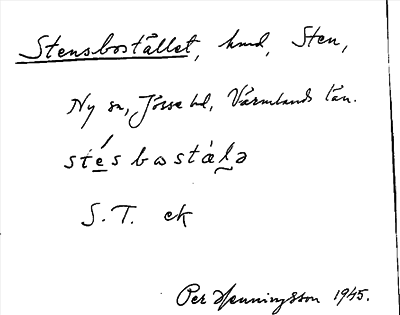 Stensbostället, hmd, Sten,
Ny sn, Jösse hd, Värmlands län.
sté̱s bɷstàl̰ə
S.T. ek
Per Henningsson 1945.